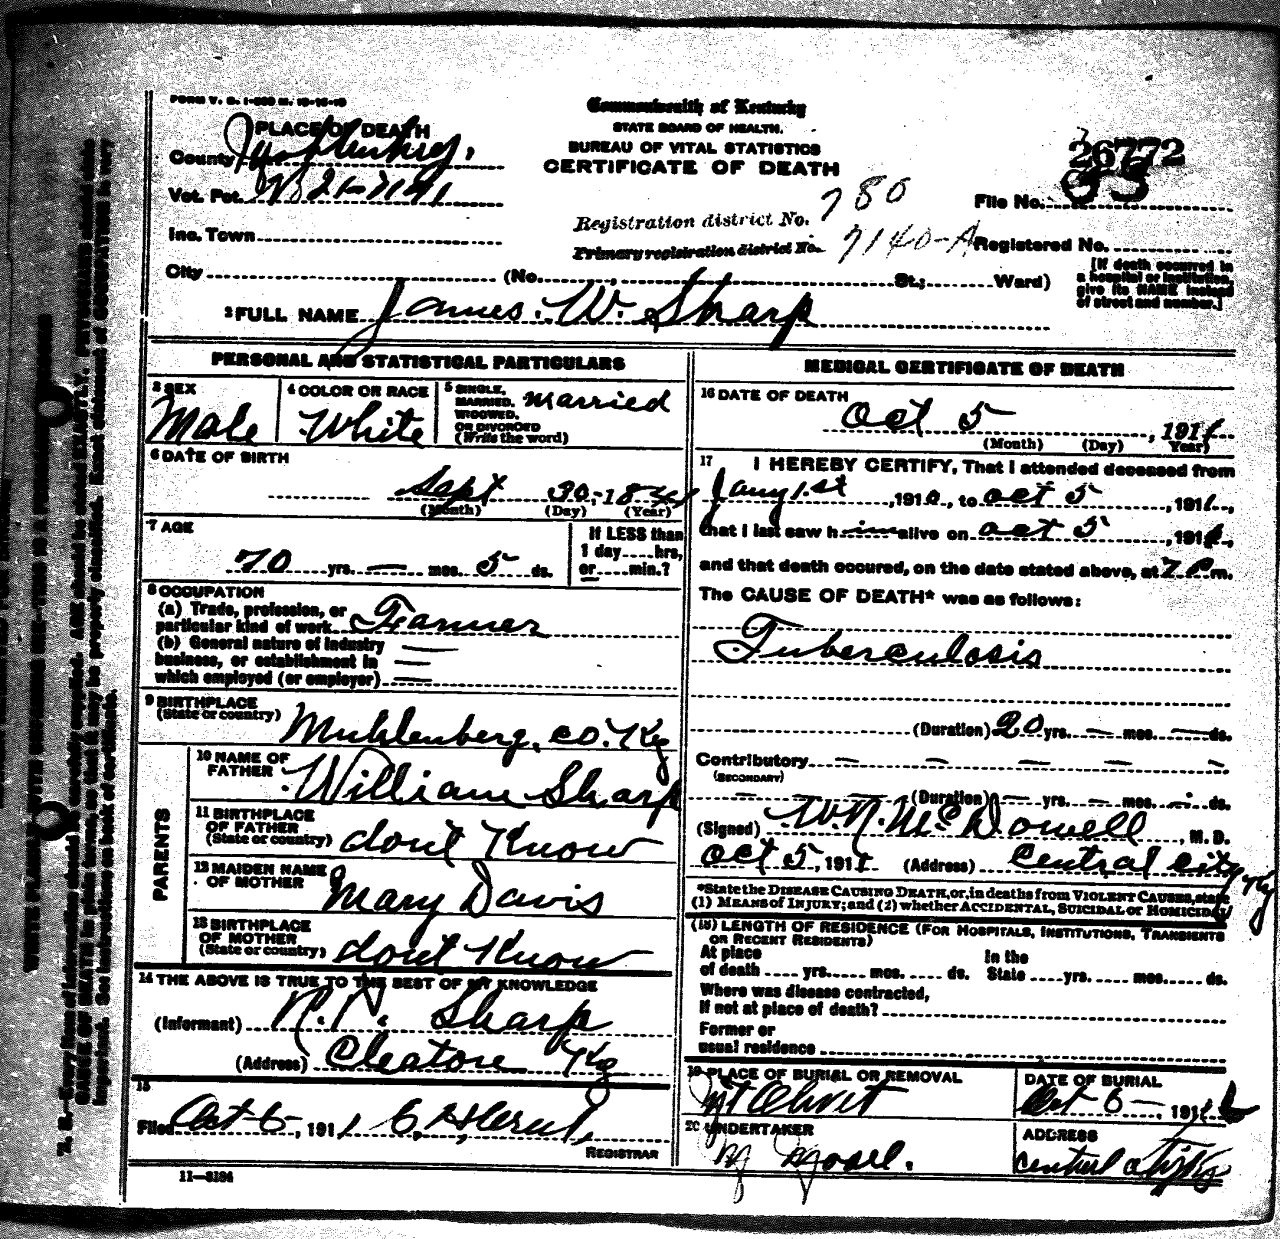 FORM V. S. 1-
Commonwealth of Kentucky
STATE BOARD OF HEALTH.
BUREAU OF VITAL STATISTICS
CERTIFICATE OF DEATH
PLACE OF DEATH
County
Vot. Pct.
Inc. Town
City (No. St.; Ward)
Registration district No. 780
Primary registration district No. 7140-A
26772
File No.
Registered No.
[If death occurred in
a hospital or institution,
give its NAME instead
of street and number.]
2 FULL NAME James. W. Sharp
PERSONAL AND STATISTICAL PARTICULARS
3 SEX
Male
4 COLOR OR RACE
White
5 SINGLE,
MARRIED,
WIDOWED,
OR DIVORCED
(Write the word)
Married
6 DATE OF BIRTH
Sept 30, 184
(Month) (Day) (Year)
7 AGE
70 yrs. — mos. 5 ds.
If LESS than
1 day ... hrs,
or ... min.?
8 OCCUPATION
(a) Trade, profession, or
particular kind of work Farmer
(b) General nature of industry —
business, or establishment in —
which employed (or employer) —
9 BIRTHPLACE
(State or country) Muhlenberg, co. Ky
PARENTS
10 NAME OF
FATHER William Sharp
11 BIRTHPLACE
OF FATHER
(State or country) dont Know
12 MAIDEN NAME
OF MOTHER Mary Davis
13 BIRTHPLACE
OF MOTHER
(State or country) dont Know
14 THE ABOVE IS TRUE TO THE BEST OF MY KNOWLEDGE
(Informant) R. N. Sharp
(Address) Cleaton Ky
15
Filed Oct 6 -, 1911
REGISTRAR
11—3184
MEDICAL CERTIFICATE OF DEATH
16 DATE OF DEATH
Oct 5, 1911
(Month) (Day) (Year)
17 I HEREBY CERTIFY, That I attended deceased from
Jany 1.st, 191, to oct 5, 191,
that I last saw him alive on oct 5, 191,
and that death occured, on the date stated above, at 7 P m.
The CAUSE OF DEATH* was as follows:
Tuberculosis
(Duration) 20 yrs. — mos. — ds.
Contributory — — — —
(SECONDARY)
— (Duration) — yrs. — mos. — ds.
(Signed) W. N. McDowell, M. D.
Oct 5, 1911 (Address) Central City Ky
*State the DISEASE CAUSING DEATH, or, in deaths from VIOLENT CAUSES, state
(1) MEANS of INJURY; and (2) whether ACCIDENTAL, SUICIDAL or HOMICIDAL
(18) LENGTH OF RESIDENCE (FOR HOSPITALS, INSTITUTIONS, TRANSIENTS
OR RECENT RESIDENTS)
At place In the
of death ... yrs. ... mos. ... ds. State ... yrs. ... mos. ... ds.
Where was disease contracted,
If not at place of death?
Former or
usual residence
19 PLACE OF BURIAL OR REMOVAL
Mt Olivet
DATE OF BURIAL
Oct 6 -, 191
20 UNDERTAKER
ADDRESS
Central City Ky